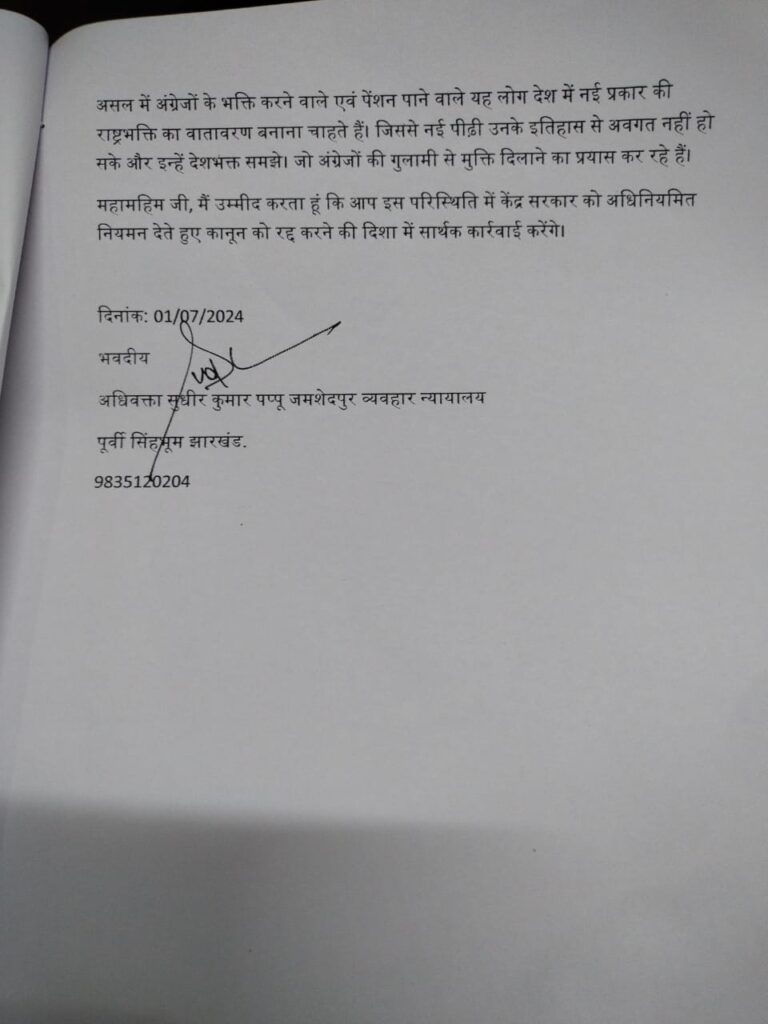 असल में अंग्रेजों के भक्ति करने वाले एवं पेंशन पाने वाले यह लोग देश में नई प्रकार की
राष्ट्रभक्ति का वातावरण बनाना चाहते हैं। जिससे नई पीढ़ी उनके इतिहास से अवगत नहीं हो
सके और इन्हें देशभक्त समझे। जो अंग्रेजों की गुलामी से मुक्ति दिलाने का प्रयास कर रहे हैं।
महामहिम जी, मैं उम्मीद करता हूं कि आप इस परिस्थिति में केंद्र सरकार को अधिनियमित
नियमन देते हुए कानून को रद्द करने की दिशा में सार्थक कार्रवाई करेंगे।
दिनांक: 01/07/2024
भवदीय
अधिवक्ता सुधीर कुमार पप्पू जमशेदपुर व्यवहार न्यायालय
पूर्वी सिंहभूम झारखंड.
9835120204